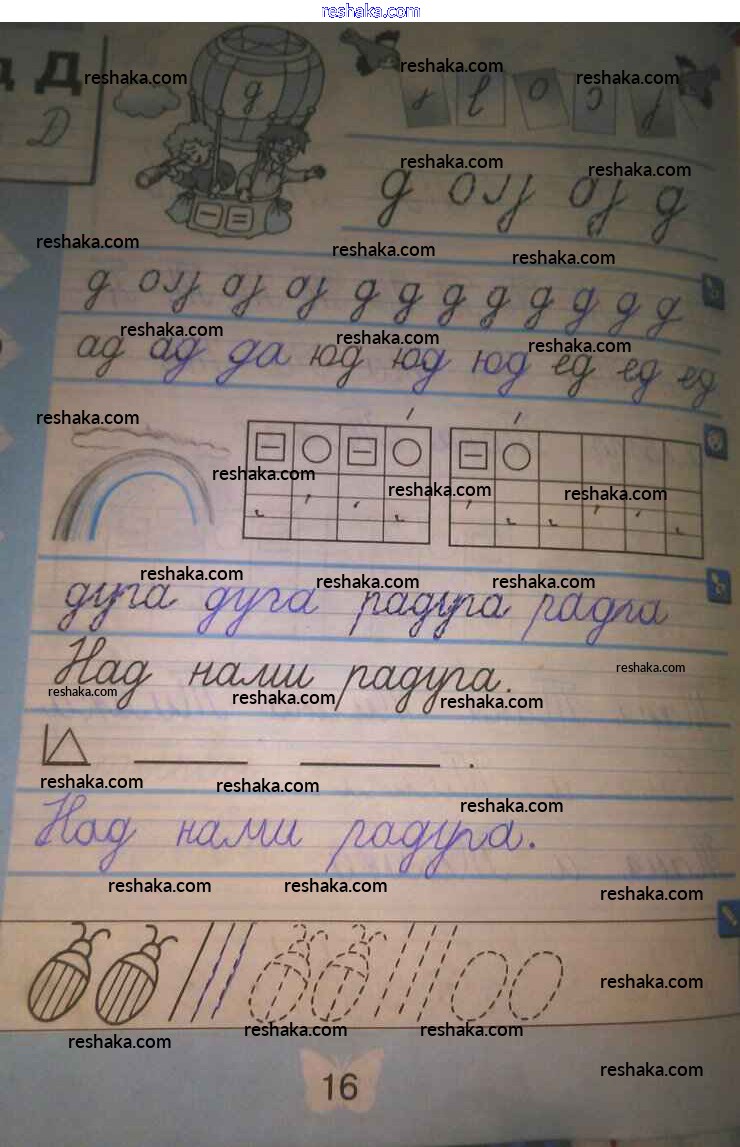 reshaka.com
Д
reshaka.com reshaka.com reshaka.com
Д
д
reshaka.com reshaka.com
д
reshaka.com reshaka.com reshaka.com
д д д д д д д д д
reshaka.com reshaka.com reshaka.com
ад ад да юд юд юд ед ед ед
reshaka.com
reshaka.com reshaka.com reshaka.com
reshaka.com reshaka.com reshaka.com
дуга дуга радуга радга
Над нами радуга.
reshaka.com
reshaka.com reshaka.com reshaka.com
reshaka.com reshaka.com
reshaka.com
Над нами радура.
reshaka.com reshaka.com reshaka.com
reshaka.com
reshaka.com reshaka.com reshaka.com
reshaka.com
16